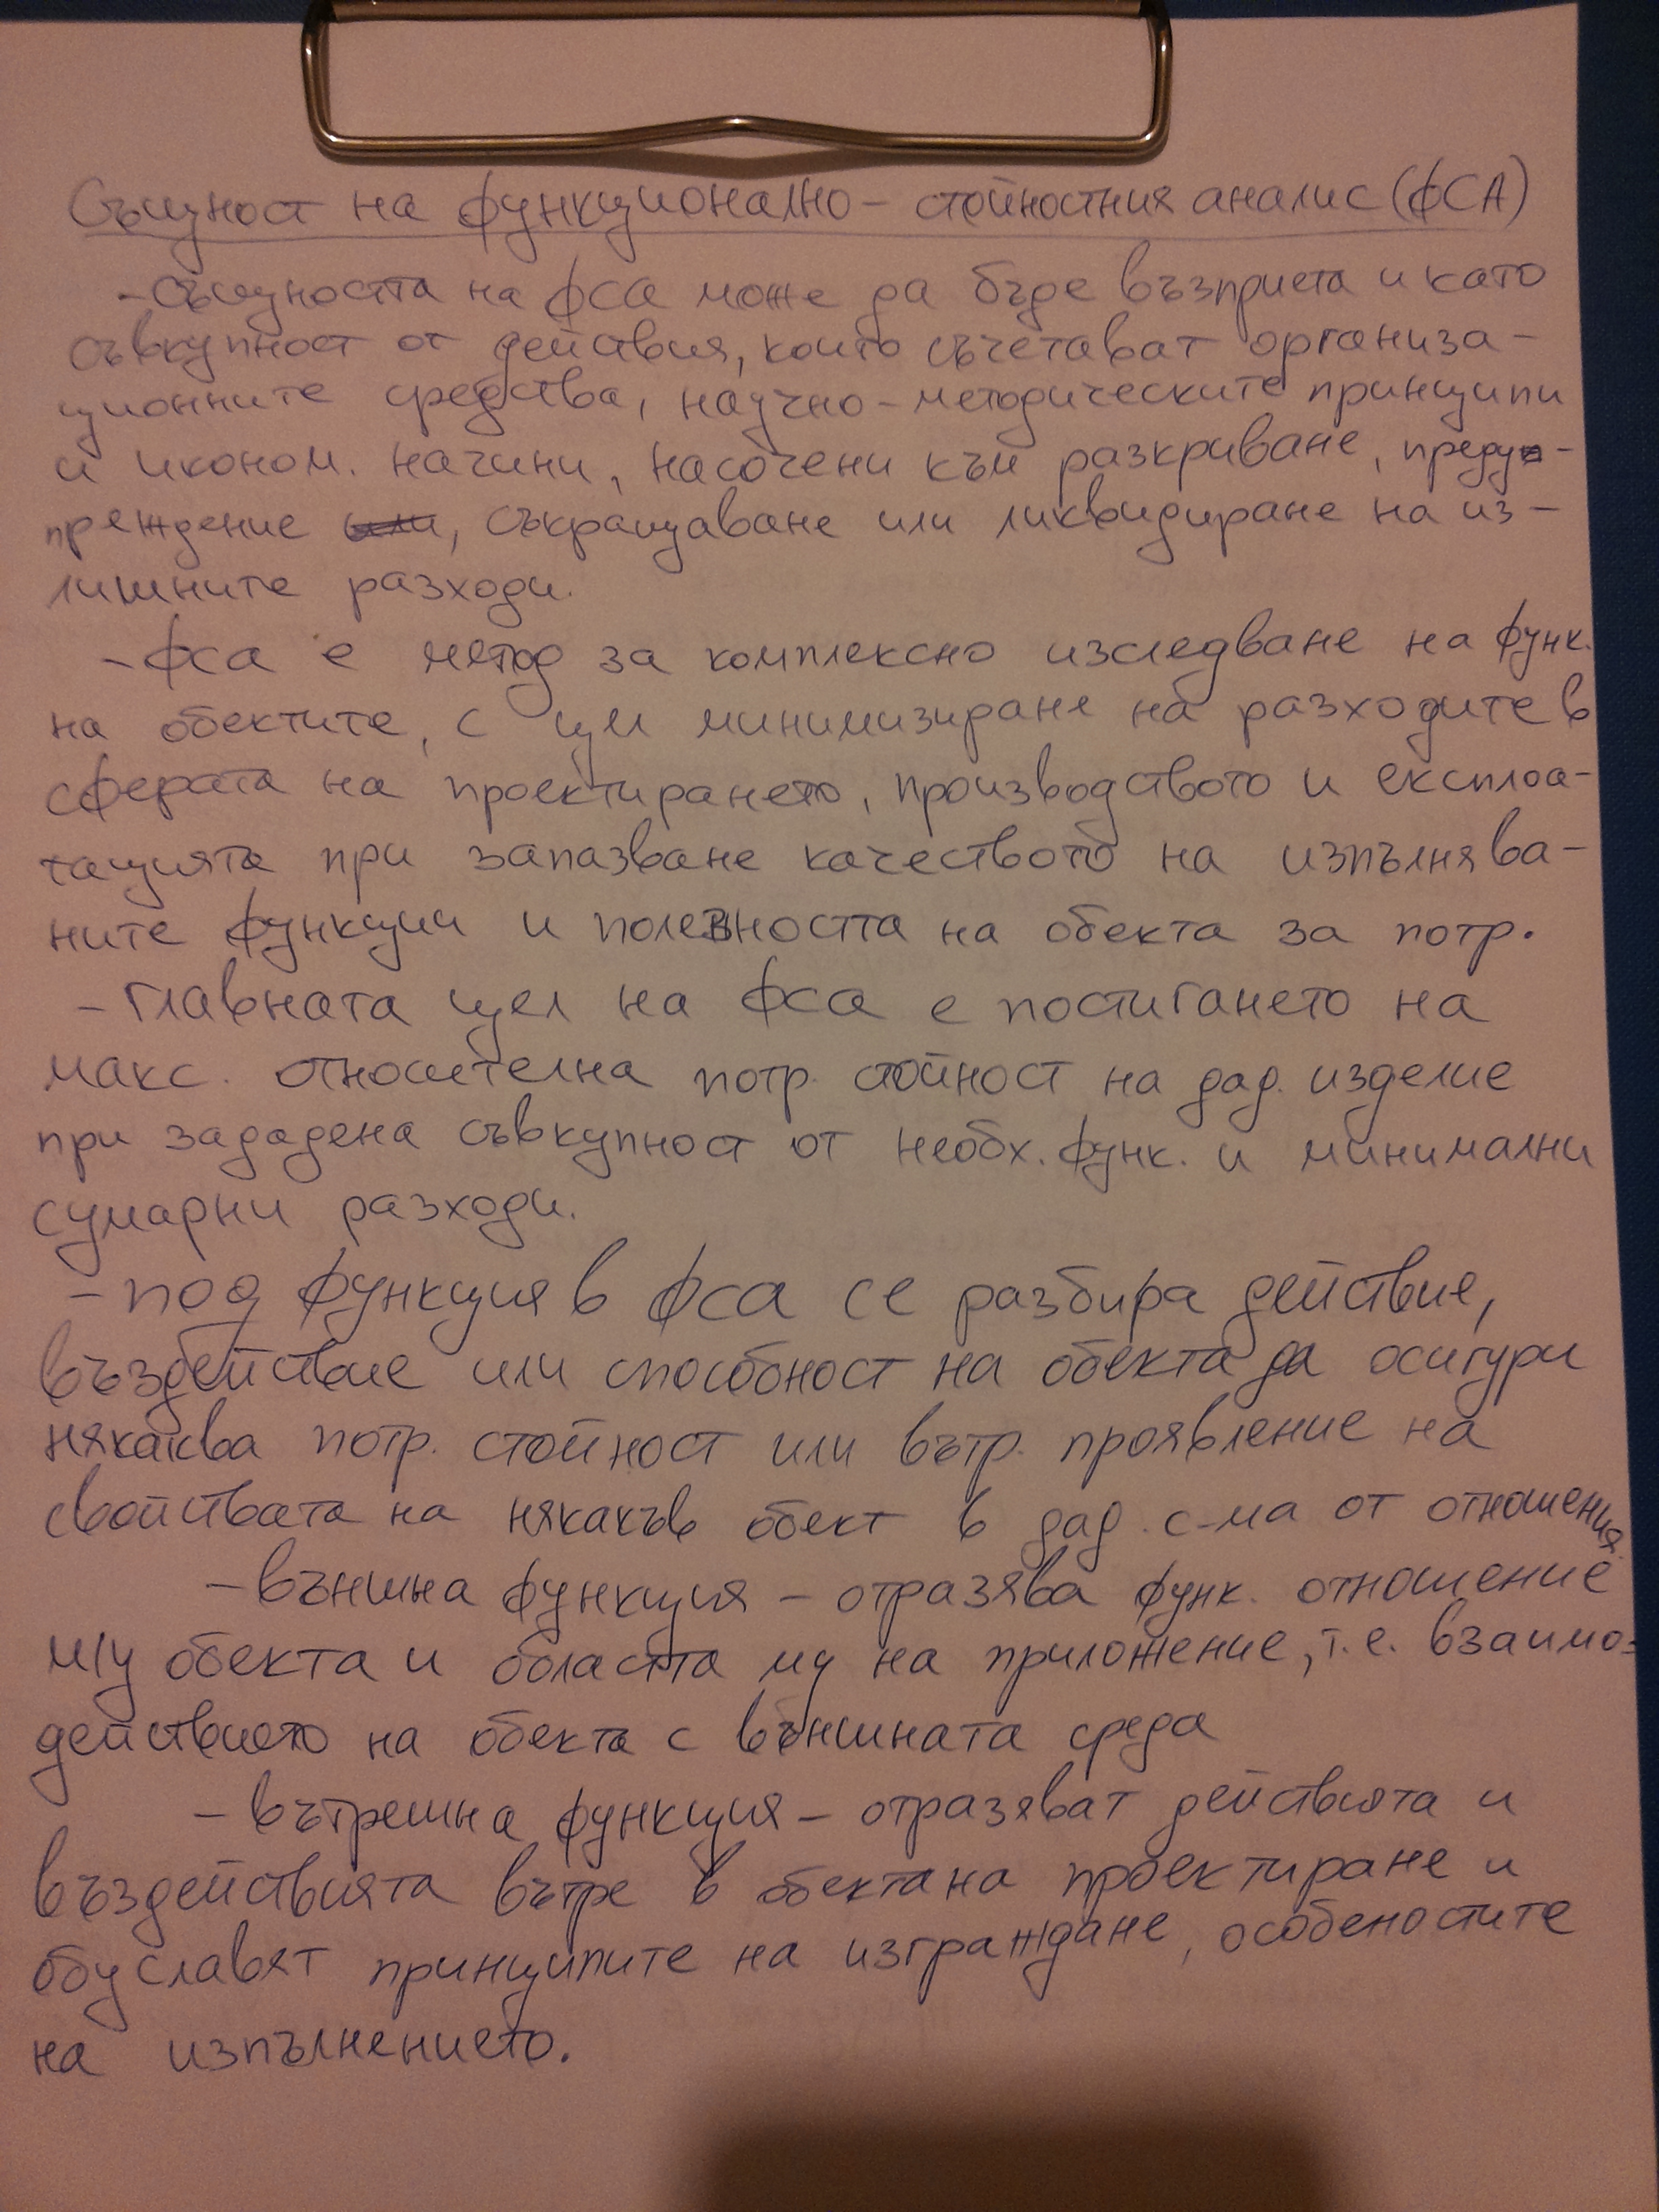 Същност на функционално - стойностния анализ (ФСА)
- Същността на ФСА може да бъде възприета и като
съвкупност от действия, които съчетават организа-
ционните средства, научно-методическите принципи
и иконом. начини, насочени към разкриване, преду-
преждение, съкращаване или ликвидиране на из-
лишните разходи.
- ФСА е метод за комплексно изследване на функ.
на обектите, с цел минимизиране на разходите в
сферата на проектирането, производството и експлоа-
тацията при запазване качеството на изпълнява-
ните функции и полезността на обекта за потр.
- Главната цел на ФСА е постигането на
макс. относителна потр. стойност на дад. изделие
при зададена съвкупност от необх. функ. и минимални
сумарни разходи.
- под функция в ФСА се разбира действие,
въздействие или способност на обекта да осигури
някаква потр. стойност или вътр. проявление на
свойствата на някакъв обект в дад. с-ма от отношения.
- външна функция - отразява функ. отношение
м/у обекта и областта му на приложение, т.е. взаимо-
действието на обекта с външната среда
- вътрешна функция - отразяват действията и
въздействията вътре в обекта на проектиране и
обуславят принципите на изграждане, особеностите
на изпълнението.